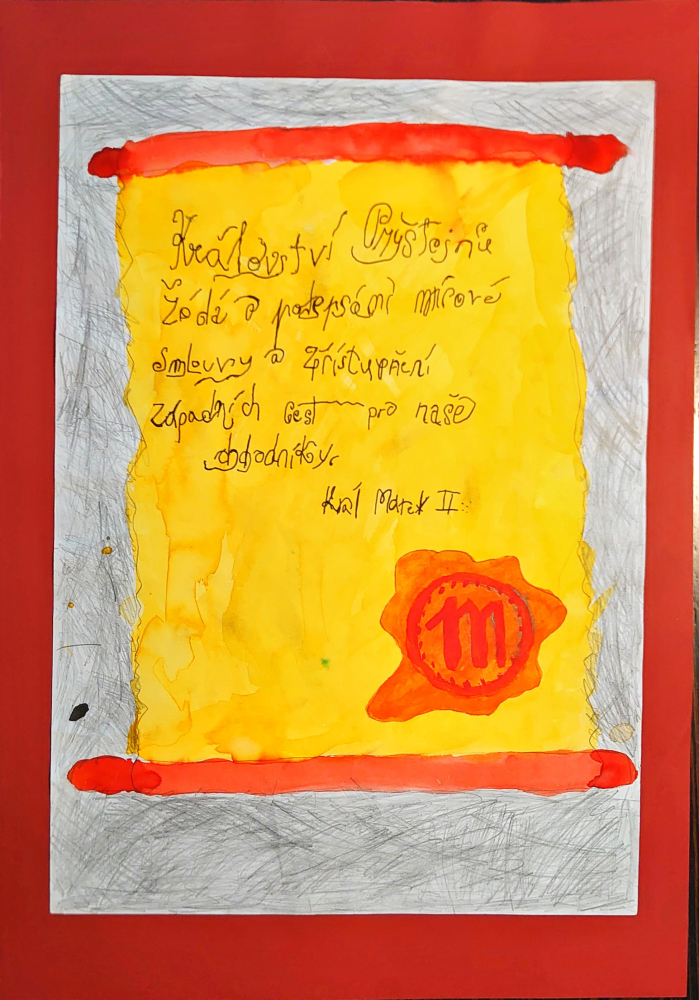 Království
Žádá o podepsání mírové
smlouvy a zřístupnění
západních cest pro naše
obchodníky.
Král Marek II.
m